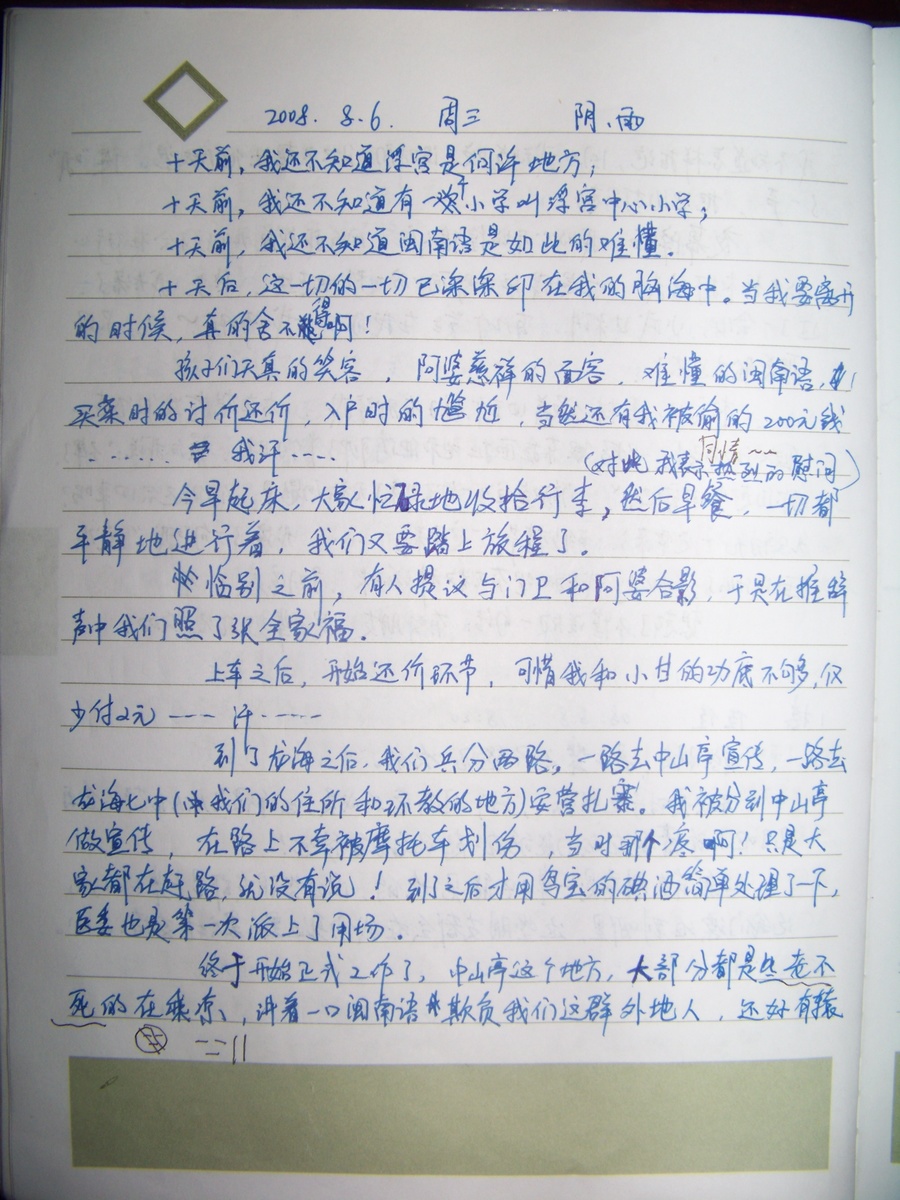 2008. 8.6. 周三 阴、雨
十天前，我还不知道浮宫是何许地方；
十天前，我还不知道有一个小学叫浮宫中心小学；
十天前，我还不知道闽南语是如此的难懂。
十天后，这一切的一切已深深印在我的脑海中。当我要离开
的时候，真的舍不得啊！
孩子们天真的笑容，阿婆慈祥的面容，难懂的闽南语，
买菜时的讨价还价，入户时的尴尬，当然还有我被偷的200元钱
........ 我汗····
同情~~
（对此我表示热烈的慰问）
今早起床，大家忙碌地收拾行李，然后早餐，一切都
平静地进行着，我们又要踏上旅程了。
临别之前，有人提议与门卫和阿婆合影，于是在推辞
声中我们照了张全家福。
上车之后，开始还价环节，可惜我和小甘的功底不够，仅
少付2元 ---- 汗·····
到了龙海之后，我们兵分两路，一路去中山亭宣传，一路去
龙海七中（我们的住所和环教的地方）安营扎寨。我被分到中山亭
做宣传，在路上不幸被摩托车划伤，当时那个疼啊！只是大
家都在赶路，就没有说！到了之后才用鸟宝的碘酒简单处理了一下，
医委也是第一次派上了用场。
终于开始正式工作了，中山亭这个地方，大部分都是些老不
死的在乘凉，讲着一口闽南语欺负我们这群外地人，还好有